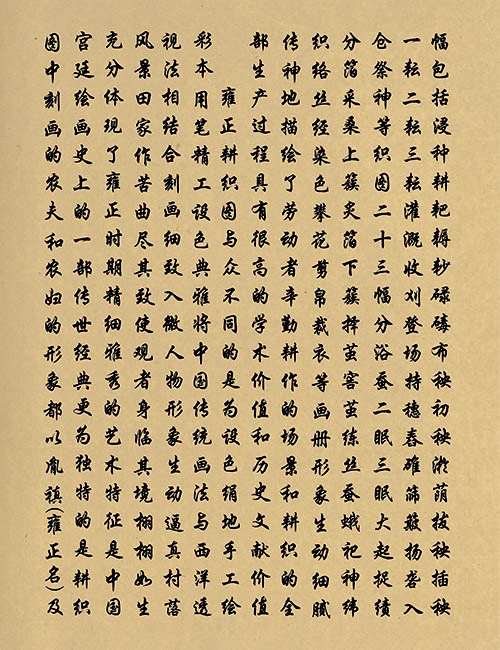 幅包括浸种耕耙耨耖碌碡布秧初秧淤荫拔秧插秧
一耘二耘三耘灌溉收刈登场持穗舂碓筛簸扬砻入
仓祭神等织图二十三幅分浴蚕二眠三眠大起捉绩
分箔采桑上簇炙箔下簇择茧窖茧练丝蚕蛾祀神纬
织络丝经染色攀花剪帛裁衣等画册形象生动细腻
传神地描绘了劳动者辛勤耕作的场景和耕织的全
部生产过程具有很高的学术价值和历史文献价值
雍正耕织图与众不同的是为设色绢地手工绘
彩本用笔精工设色典雅将中国传统画法与西洋透
视法相结合刻画细致入微人物形象生动逼真村落
风景田家作苦曲尽其致使观者身临其境栩栩如生
充分体现了雍正时期精细雅秀的艺术特征是中国
宫廷绘画史上的一部传世经典更为独特的是耕织
图中刻画的农夫和农妇的形象都以胤禛(雍正名)及